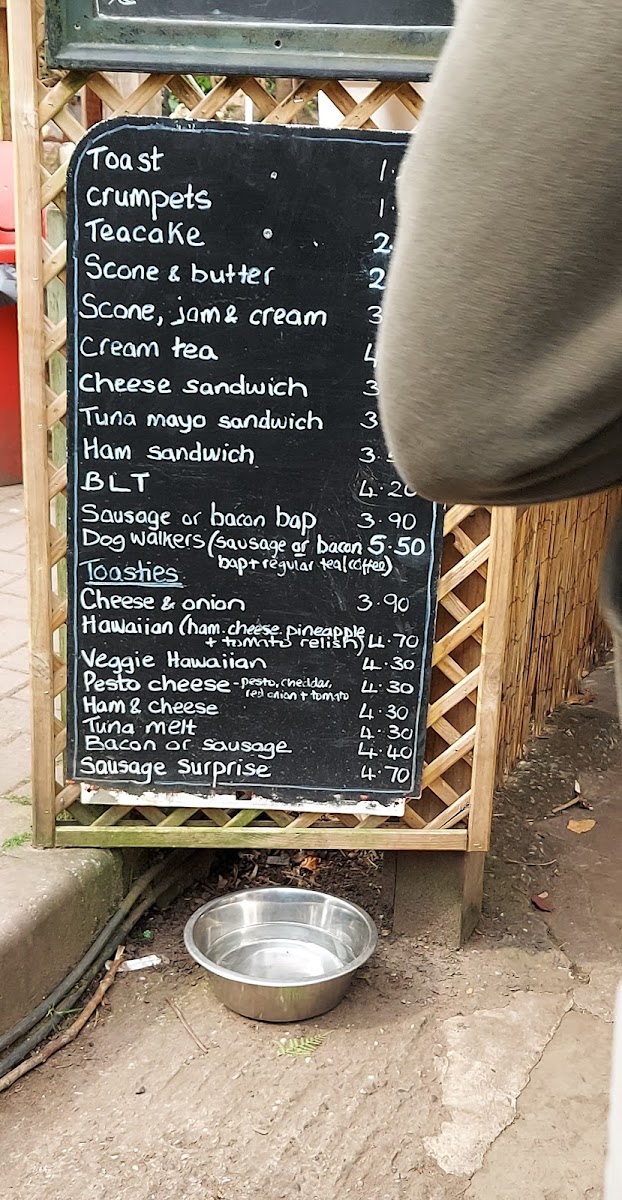 Toast 1.
crumpets 1.
Teacake 2.
Scone & butter 2
Scone, jam & cream 3
Cream tea 4
Cheese sandwich 3
Tuna mayo sandwich 3
Ham sandwich 3.
BLT 4.20
Sausage or bacon bap 3.90
Dog walkers (sausage or bacon 5.50
bap + regular tea/coffee)
Toasties
Cheese & onion 3.90
Hawaiian (ham, cheese, pineapple
+ tomato relish) 4.70
Veggie Hawaiian 4.30
Pesto cheese - pesto, cheddar, 4.30
red onion + tomato
Ham & cheese 4.30
Tuna melt 4.30
Bacon or sausage 4.40
Sausage surprise 4.70